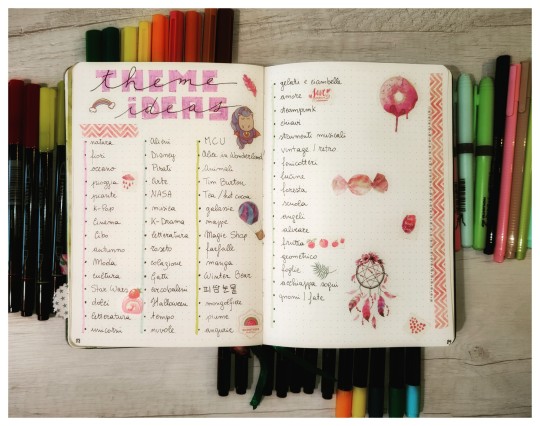 theme
ideas
natura
fiori
oceano
pioggia
piante
K-Pop
Cinema
Cibo
autunno
Moda
cultura
Star Wars
dolci
letteratura
unicorni
Alieni
Disney
Pirati
Arte
NASA
musica
K-Drama
letteratura
roseto
colazione
Gatti
arcobaleni
Halloween
tempo
nuvole
M.C.U
Alice in Wonderland
Animali
Tim Burton
Tea / hot cocoa
galassie
mappe
Magic Shop
farfalle
manga
Winter Bear
피 땀 눈물
mongolfiere
piume
angurie
gelati e ciambelle
amore
steampunk
chiavi
strumenti musicali
vintage / retro
fenicotteri
foresta
scuola
angeli
alveare
frutta
geometrico
foglie
acchiappa sogni
gnomi / fate